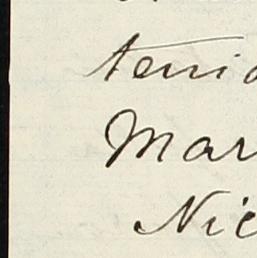 tenid
Mar
Nic